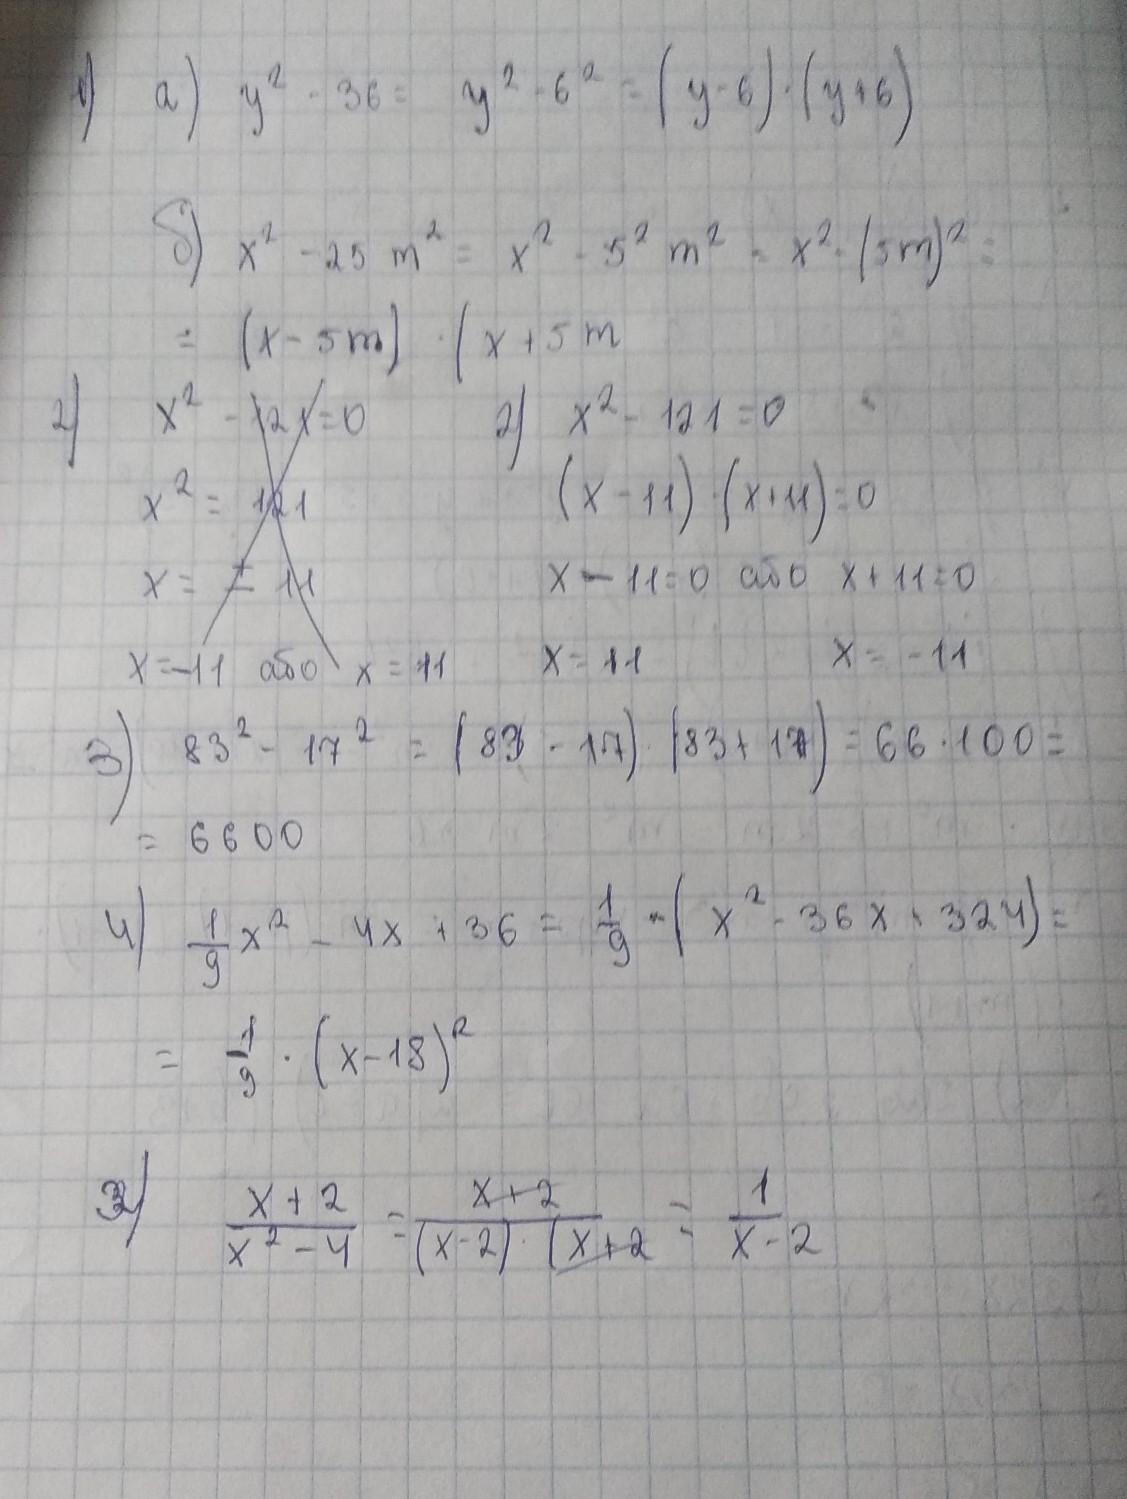 1) а) y² - 36 = y² - 6² = (y-6)·(y+6)
б) x² - 25 m² = x² - 5² m² = x² - (5m)² =
= (x - 5m) · (x + 5m
2) x² - 121 = 0
x² = 121
x = ± 11
x = -11 або x = 11
2) x² - 121 = 0
(x - 11) · (x + 11) = 0
x - 11 = 0 або x + 11 = 0
x = 11 x = -11
3) 83² - 17² = (83 - 17) · (83 + 17) = 66 · 100 =
= 6600
4) 1/9 x² - 4x + 36 = 1/9 · (x² - 36x + 324) =
= 1/9 · (x - 18)²
3) x + 2 / x² - 4 = x + 2 / (x - 2) · (x + 2 = 1 / x - 2